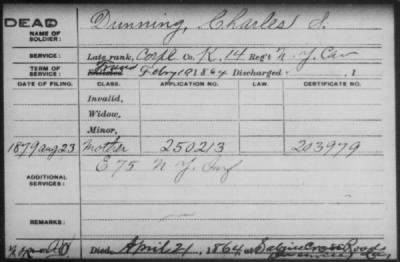 DEAD
NAME OF SOLDIER:
Dunning, Charles S.
SERVICE:
Late rank, Corpl Co. K, 14 Reg't N. Y. Cav
TERM OF SERVICE:
Enlisted Feby 19 1864 Discharged , 1
DATE OF FILING. CLASS. APPLICATION NO. LAW. CERTIFICATE NO.
Invalid,
Widow,
Minor,
1879 Aug 23 Mother 250213 203979
ADDITIONAL SERVICES:
E 75 N Y Inf
REMARKS:
Died April 21, 1864 at Sabine Cross Roads